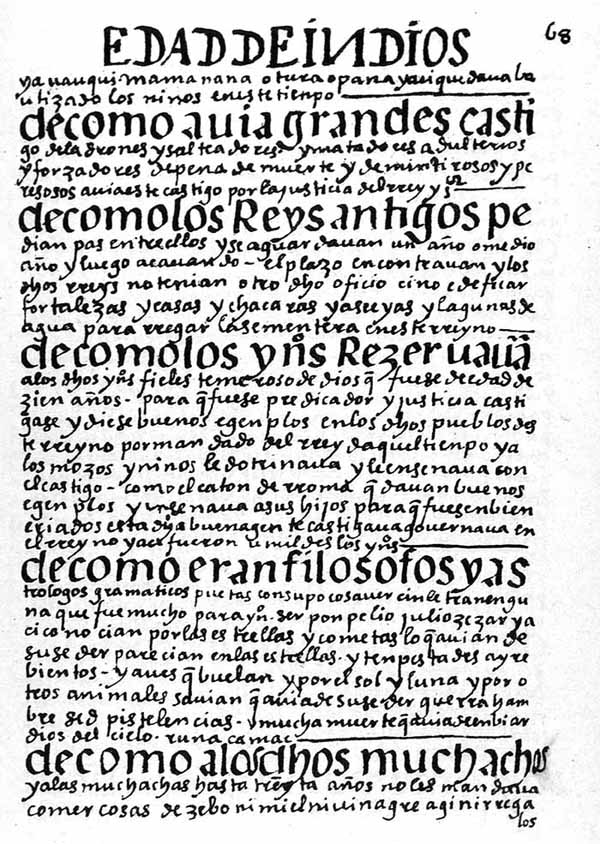 EDAD DE INDIOS
68
ya uauqui mama nana o tura o pana yaciquedauaba
utizado los ninos en este tienpo
de como auia grandes casti
go de ladrones y salteadores y matadores adulterios
y forzadores de pena de muerte y de mintirosos y pe
resosos auia este castigo por la justicia del rrey y
de como los Reys antigos pe
dian pas entre ellos y se aguardauan un año o medio
año y luego acauando - el plazo encontrauan y los
dhos rreys no tenian otro dho oficio cino edeficar
fortalezas y casas y chacaras y aseyas y lagunas de
agua para rregar la sementera en este rreyno
de como los yns Rezeruaua
a los dhos yns fieles temeroso de dios q fuese de edad de
zien años - para q fuese predicador y justicia casti
gase y diese buenos egenplos en los dhos pueblos des
te rreyno por mandado del rrey daquel tienpo ya
los mozos y ninos le dotrinaua y le ensenaua con
el castigo - como el caton de rroma q dauan buenos
egenplos y ensenaua a sus hijos para q fuesen bien
criados esta dha buena gente castigaua gouernaua en
el rreyno yaci fueron umildes los yns
de como eran filosofos y as
trologos gramaticos puetas con su poco sauer cin letra nengu
na que fue mucho para yn ser ponpelio julio zezar ya
ci conocian por las estrellas y cometas lo q auian de
suseder parecian en las estrellas - y tenpestades ayre
bientos - y aues q buelan y por el sol y luna y por o
tros animales sauian q auia de suseder guerra ham
bre sed pistelencias - y mucha muerte q auia de enbiar
dios del cielo - runa camac
de como a los dhos muchachos
y a las muchachas hasta treynta años no les mandaua
comer cosas de zebo ni miel ni uinagre agi ni rrega
los